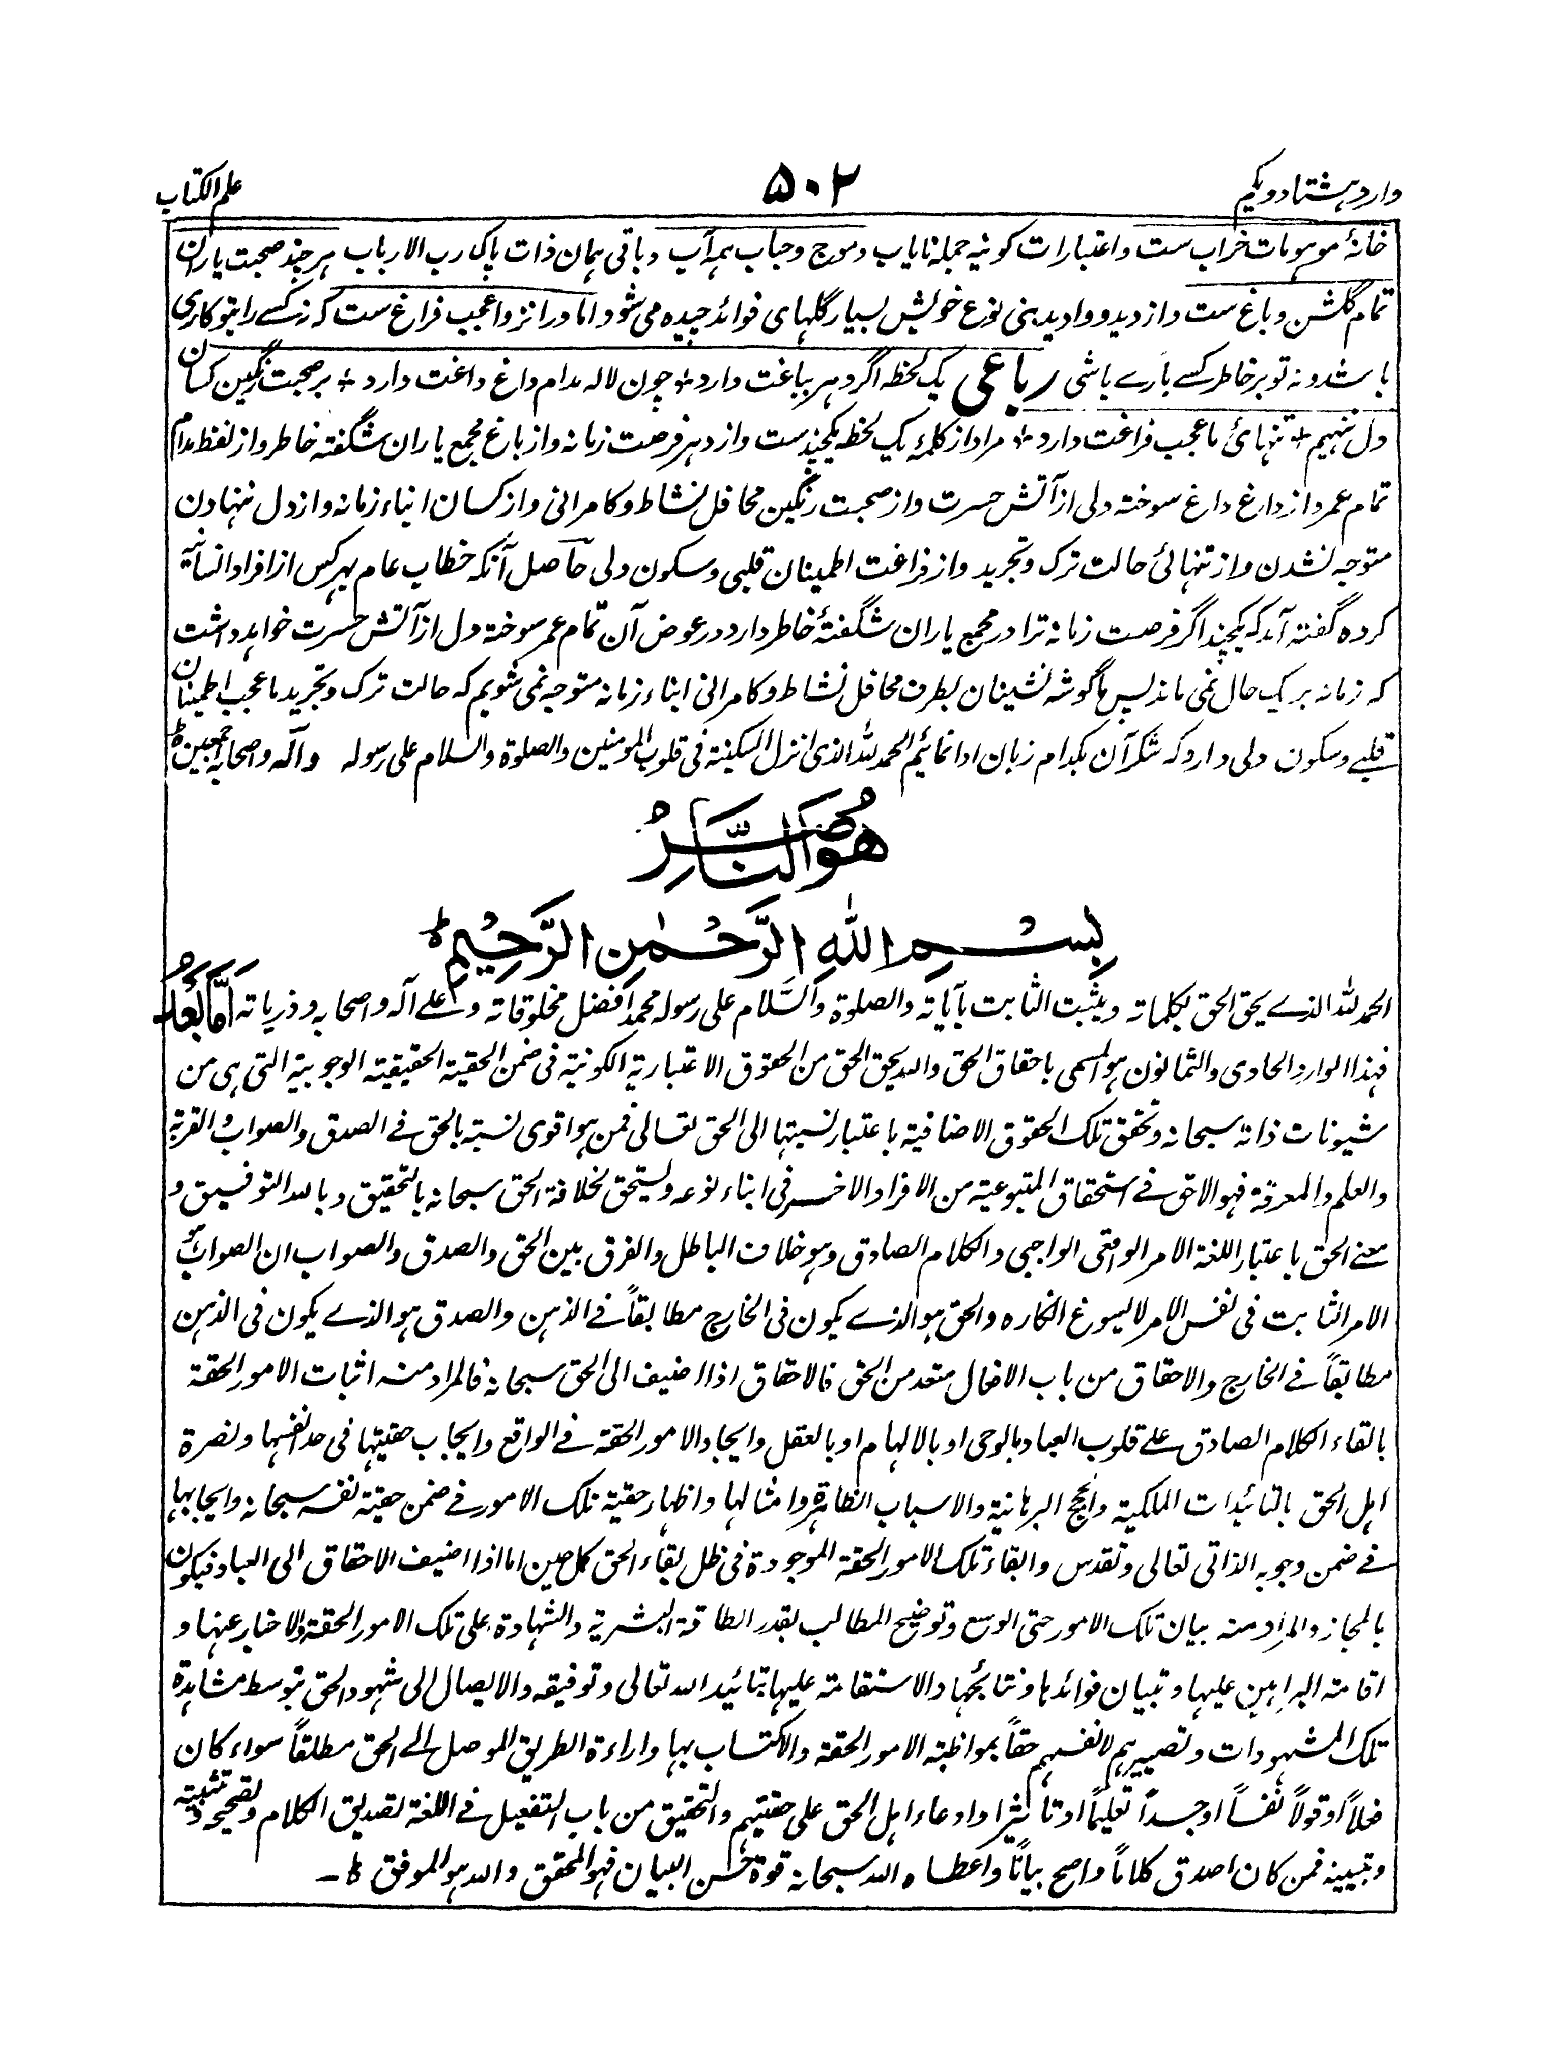 وارد هشتاد و یکم
۵۰۲
علم الکتاب
خانهٔ موسومات خراب ست و اعتبارات کونیه جمله نایاب و موج و حباب همه آب و باقی همان ذات پاک رب الارباب هر چند صحبت یاران
تمام گلشن و باغ ست و از دید و وادید بنی نوع خویش بسیار گلهای فوائد چیده می شود اما در انزوا عجب فراغ ست که نه کسے را بتو کاری
باشد و نه تو بر خاطر کسے بارے باشی رباعی یک لحظه اگر دهر بباغت دارد + چون لاله مدام داغ داغت دارد + بر صحبت رنگین کسان
دل ننهیم + تنهائی ما عجب فراغت دارد + مراد از کلمهٔ یک لحظه یکچند ست و از دهر فرصت زمانه و از باغ مجمع یاران شگفته خاطر و از لفظ مدام
تمام عمر و از داغ داغ سوخته دلی از آتش حسرت و از صحبت رنگین محافل نشاط و کامرانی و از کسان ابناء زمانه و از دل ننهادن
متوجه نشدن و از تنهائی حالت ترک و تجرید و از فراغت اطمینان قلبی و سکون دلی حاصل آنکه خطاب عام بهر کس از افراد انسانیه
کرده گفته آمد که یکچند اگر فرصت زمانه ترا در مجمع یاران شگفتهٔ خاطر دارد در عوض آن تمام عمر سوخته دل از آتش حسرت خواهد داشت
که زمانه بر یک حال نمی ماند پس ما گوشه نشینان بطرف محافل نشاط و کامرانی ابناء زمانه متوجه نمی شویم که حالت ترک و تجرید ما عجب اطمینان
قلبے و سکون دلی دارد که شکر آن بکدام زبان ادا نمائیم الحمد لله الذی انزل السکینة فی قلوب المومنین والصلوة والسلام علی رسوله وآله واصحابه اجمعین ط
هُوَ النَّاصِرُ
بِسْمِ اللهِ الرَّحْمٰنِ الرَّحِیْمِ ط
الحمد لله الذے یحق الحق بکلماته ویثبت الثابت بآیاته والصلوة والسَّلام علی رسوله محمد افضل مخلوقاته وعلے آله واصحابه وذریاته اَمَّا بَعْدُ
فهذا الوارد الحادی والثمانون هو المسمی باحقاق الحق والله یحق الحق من الحقوق الاعتباریة الکونیة فی ضمن الحقیة الحقیقیة الوجوبیة التی هی من
شیونات ذاته سبحانه وتحقق تلک الحقوق الاضافیة باعتبار نسبتها الی الحق تعالی فمن هو اقوی نسبة بالحق فے الصدق والصواب والقربة
والعلم والمعرفة فهو الاحق فے استحقاق المتبوعیة من الافراد الاخر فی ابناء نوعه ویستحق لخلافة الحق سبحانه بالتحقیق وبالله التوفیق و
معنے الحق باعتبار اللغة الامر الواقعی الواجبی والکلام الصادق وهو خلاف الباطل والفرق بین الحق والصدق والصواب ان الصواب هو
الامر الثابت فی نفس الامر لا یسوغ انکاره والحق هو الذے یکون فی الخارج مطابقاً فے الذهن والصدق هو الذے یکون فی الذهن
مطابقاً فے الخارج والاحقاق من باب الافعال متعد من الحق فالاحقاق اذا اضیف الی الحق سبحانه فالمراد منه اثبات الامور الحقة
بالقاء الکلام الصادق علے قلوب العباد بالوحی او بالالهام او بالعقل وایجاد الامور الحقة فے الواقع وایجاب حقیتها فی حد انفسها ونصرة
اهل الحق بالتائیدات الملکیة والحجج البرهانیة والاسباب الظاهرة وامثالها واظهار حقیة تلک الامور فے ضمن حقیة نفسه سبحانه وایجابها
فے ضمن وجوبه الذاتی تعالی وتقدس وابقاء تلک الامور الحقة الموجودة فی ظل بقاء الحق کل حین اما اذا اضیف الاحقاق الی العباد فیکون
بالمجاز والمراد منه بیان تلک الامور حتی الوسع وتوضیح المطالب بقدر الطاقة البشریة والشهادة علی تلک الامور الحقة والاخبار عنها و
اقامة البراهین علیها وتبیان فوائدها ونتائجها والاستقامة علیها بتائید الله تعالی وتوفیقه والایصال الی شهود الحق بتوسط مشاهدة
تلک المشهودات وتصییرهم لانفسهم حقاً بمواظبة الامور الحقة والاکتساب بها واراءة الطریق الموصل الے الحق مطلقاً سواء کان
فعلاً او قولاً نفساً او جسداً تعلیماً او تاثیرا وادعاء اهل الحق علی حقیتهم والتحقیق من باب التفعیل فے اللغة تصدیق الکلام وتصحیحه وتثبیته
وتبیینه فمن کان اصدق کلاماً واصح بیاناً واعطاه الله سبحانه قوة حسن البیان فهو المحقق والله هو الموفق ط